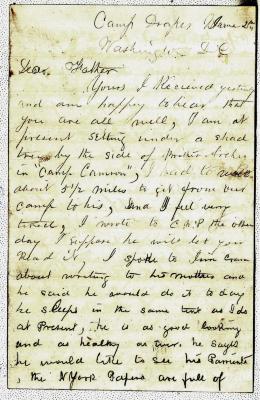 Camp June 2th
Washington D C
Dear Father
Yours I Received yesterday
and am happy to hear that
you are all well, I am at
present setting under a shad
tree by the side of brother
in "Camp Cameron", I had to
about 5 1/2 miles to get from our
camp to his, and I feel very
tired, I wrote to C & P the other
day I suppose he will let you
Read it, I spoke to Jim Crain
about writing to his mother and
he said he should do it to day
he sleeps in the same tent as I do
at Present, he is as good looking
and as healthy as ever. he says
he would like to see his Parrents
, the N York Papers are full of